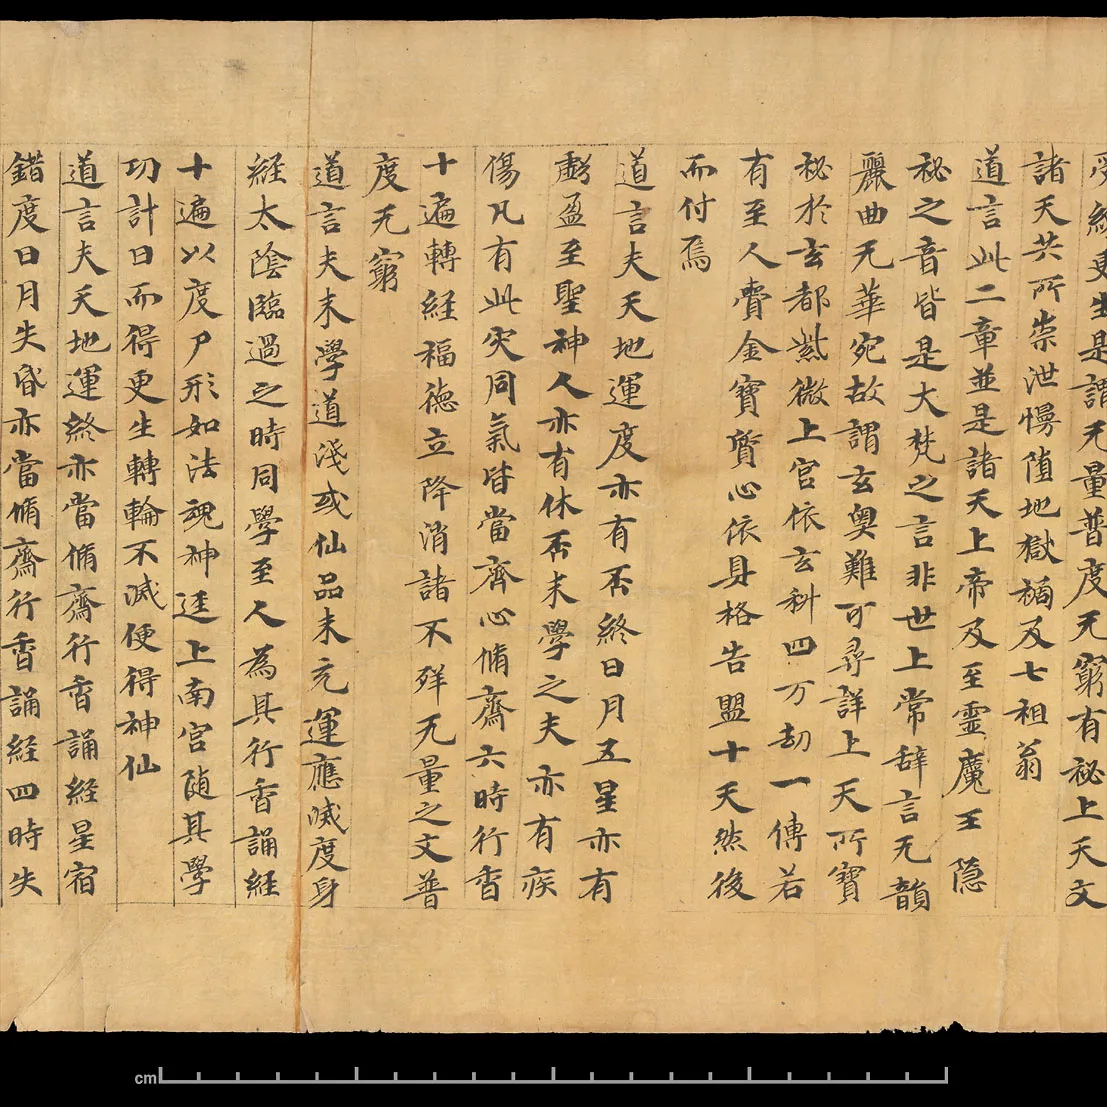 受經更生是謂无量普度无窮有秘上天文
諸天共所崇泄慢墮地獄禍及七祖翁
道言此二章並是諸天上帝及至靈魔王隱
秘之音皆是大梵之言非世上常辞言无韻
麗曲无華宛故謂玄奧難可尋詳上天所寶
秘於玄都紫微上宮依玄科四万劫一傳若
有至人賷金寶質心依具格告盟十天然後
而付焉
道言夫天地運度亦有否終日月五星亦有
虧盈至聖神人亦有休否末學之夫亦有疾
傷凡有此灾同氣皆當齊心脩齋六時行香
十遍轉經福德立降消諸不祥无量之文普
度无窮
道言夫末學道淺或仙品未充運應滅度身
經太陰臨過之時同學至人為其行香誦經
十遍以度尸形如法魂神逕上南宮随其學
功計日而得更生轉輪不滅便得神仙
道言夫天地運終亦當脩齋行香誦經星宿
錯度日月失昏亦當脩齋行香誦經四時失